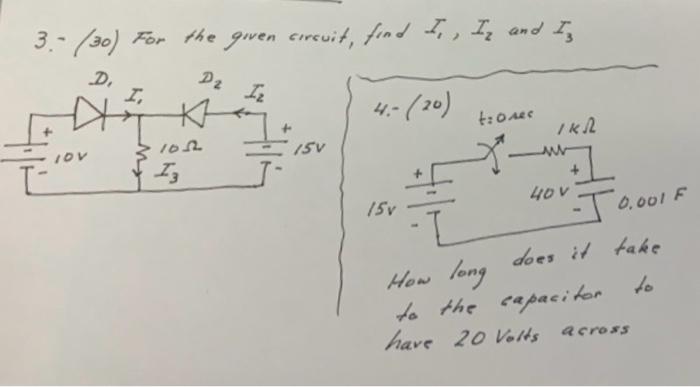 3.- (30) For the given circuit, find I₁, I₂ and I₃
D₁
I₁
D₂
I₂
+
10V
-
10Ω
I₃
+
15V
-
4.- (20)
t=0 sec
1KΩ
+
15v
-
+
40V
-
0.001 F
How long does it take
to the capacitor to
have 20 Volts across